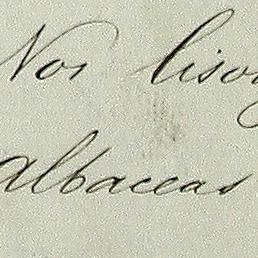 Nos lison
albaceas